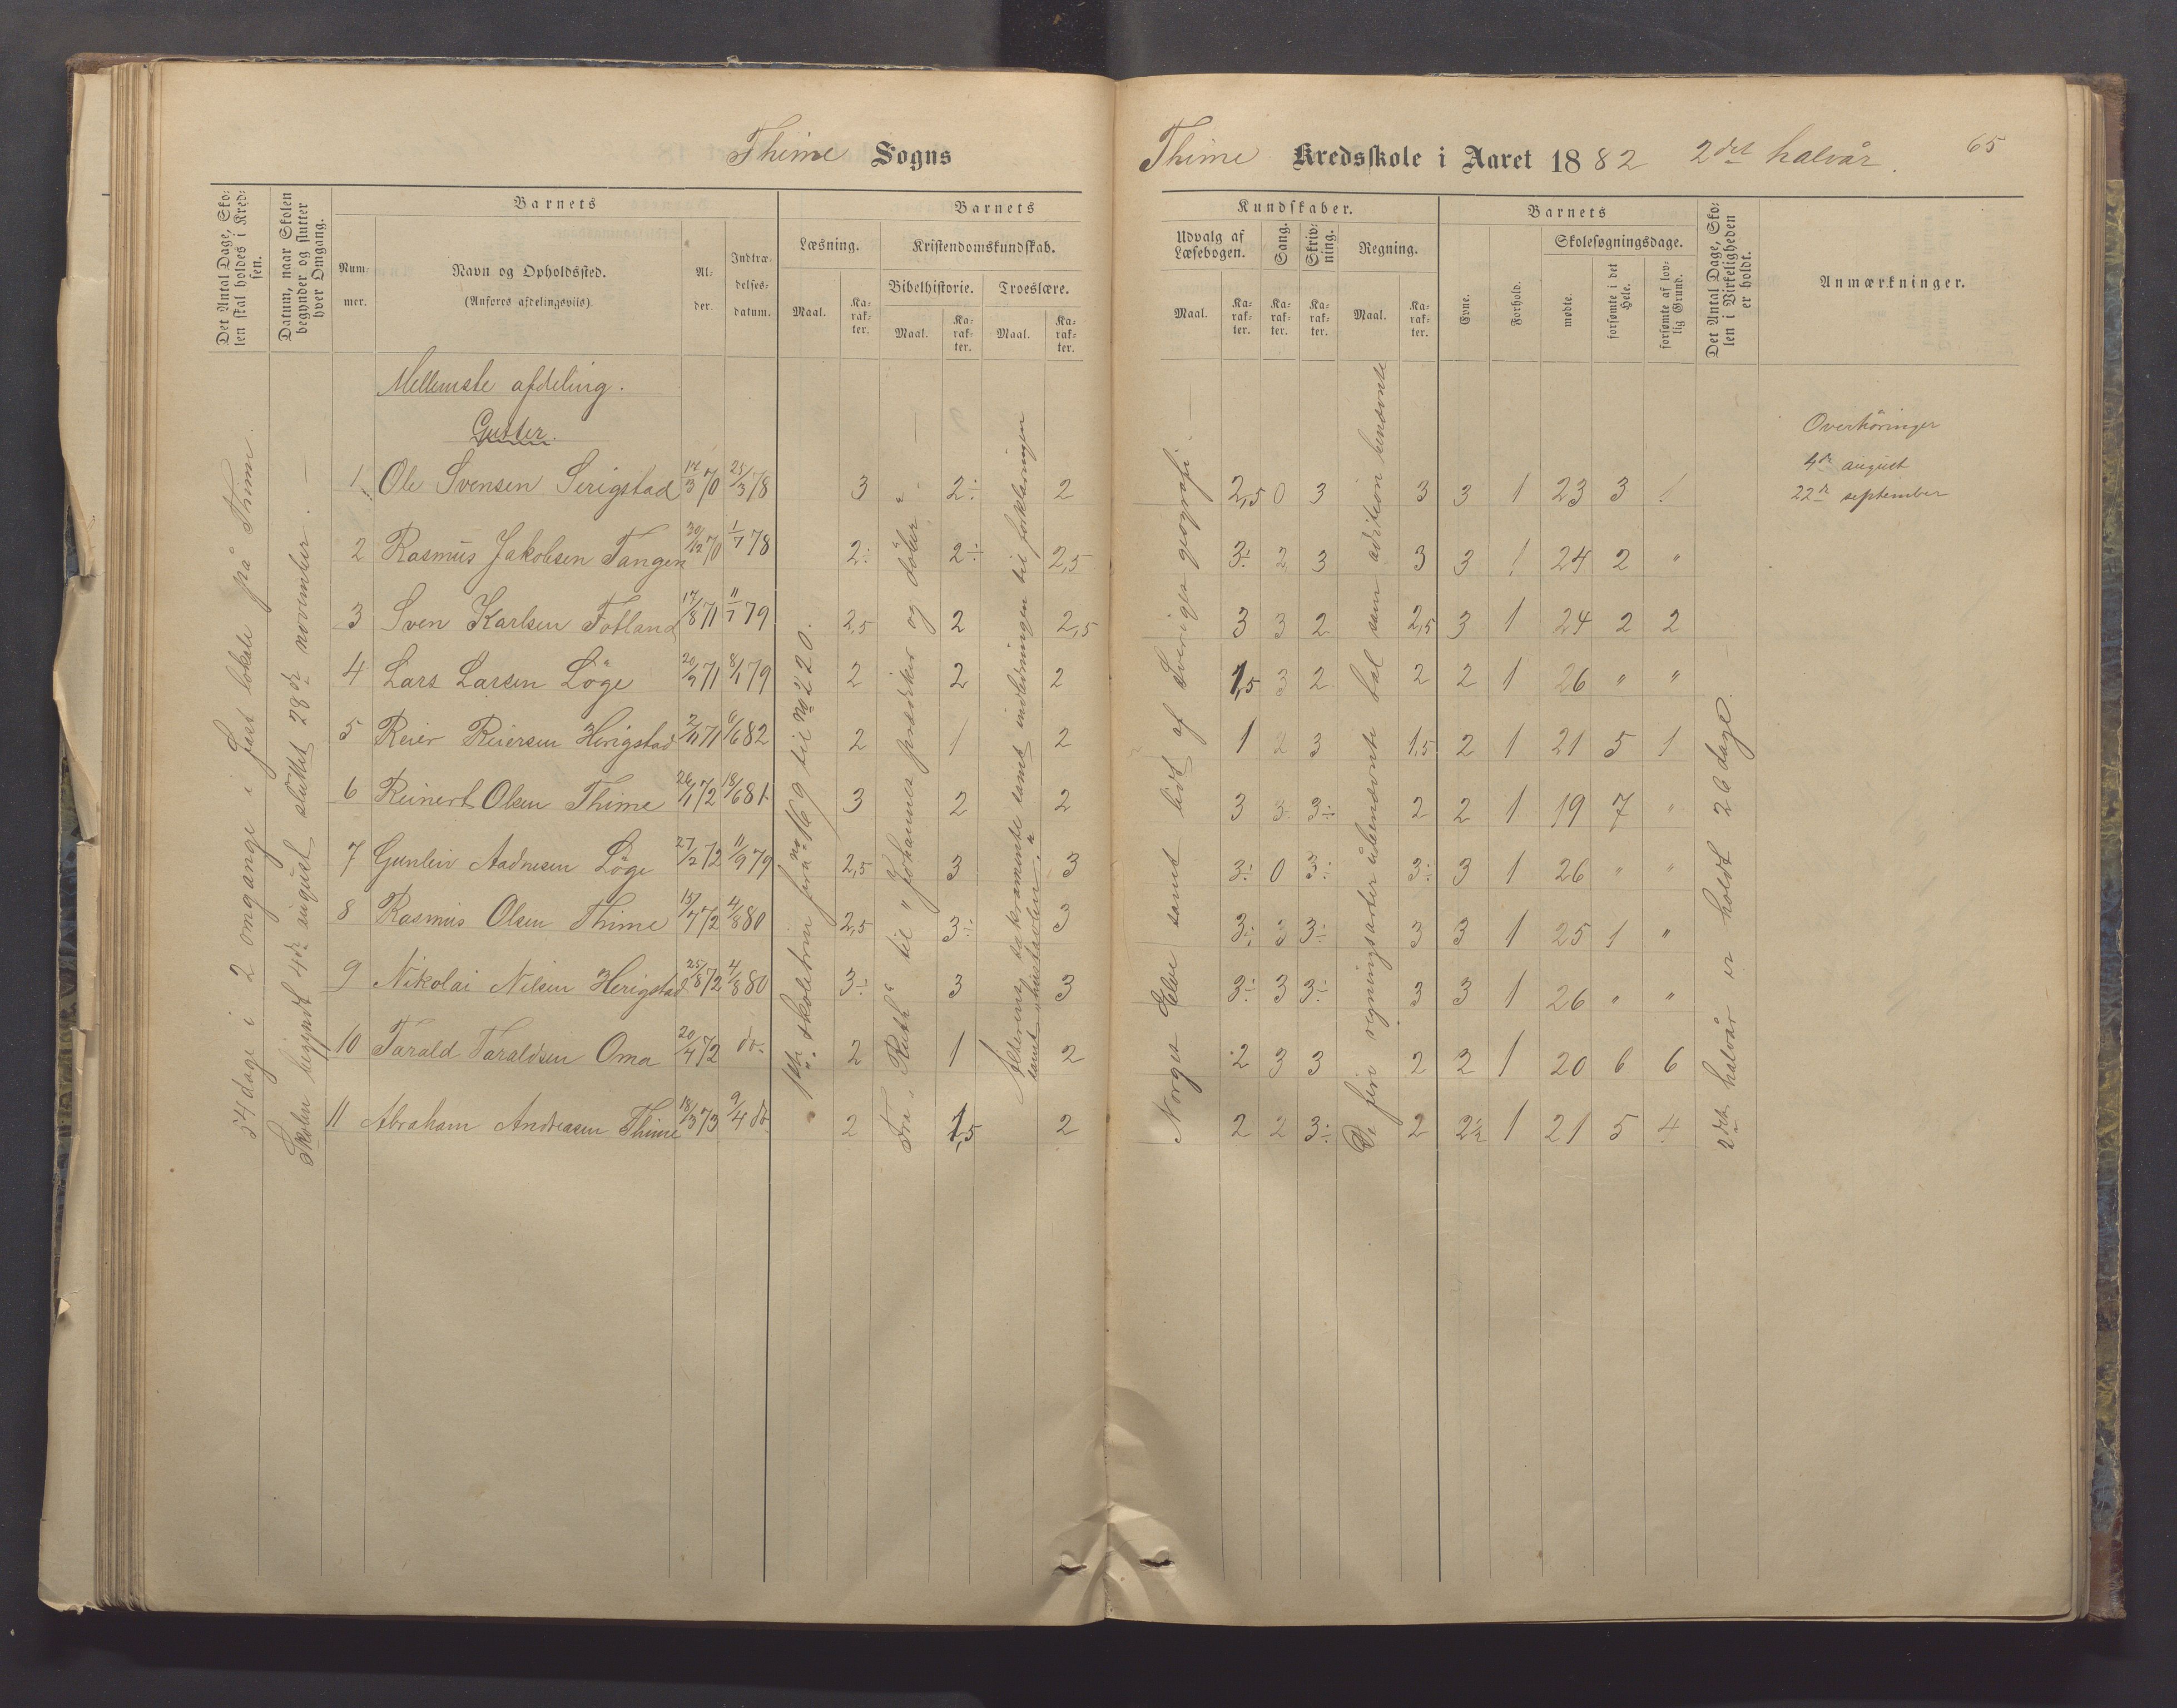 Thime Sogns
Thime Kredsskole i Aaret 1882 2det halvår. 65
Det Antal Dage, Sko-
len skal holdes i Kred-
sen.
Datum, naar Skolen
begynder og slutter
hver Omgang.
Barnets
Num-
mer.
Navn og Opholdssted.
(Anføres afdelingsviis).
Al-
der.
Indtræ-
delses-
datum.
Barnets
Læsning.
Maal.
Ka-
rak-
ter.
Kristendomskundskab.
Bibelhistorie.
Maal.
Ka-
rak-
ter.
Troeslære.
Maal.
Ka-
rak-
ter.
Kundskaber.
Udvalg af
Læsebogen.
Maal.
Ka-
rak-
ter.
Sang.
Ka-
rak-
ter.
Skriv-
ning.
Ka-
rak-
ter.
Regning.
Maal.
Ka-
rak-
ter.
Barnets
Evne.
Forhold.
Skolesøgningsdage.
mødte.
forsømte i det
Hele.
forsømte af lov-
lig Grund.
Det Antal Dage, Sko-
len i Virkeligheden
er holdt.
Anmærkninger.
54 dage i 2 omgange i fast lokale på Thime.
Skolen begyndt 4de august sluttet 28de november. —
Mellemste afdeling.
Gutter.
1 Ole Svensen Serigstad 17/3 70 25/3 78 3 2÷ 2 2,5 0 3 3 3 1 23 3 1
2 Rasmus Jakobsen Tangen 30/12 70 1/7 78 2÷ 2÷ 2,5 3÷ 2 3 3 3 1 24 2 "
3 Sven Karlsen Fotland 17/8 71 11/7 79 2,5 2 2,5 3 3 2 2,5 3 1 24 2 2
4 Lars Larsen Löge 20/9 71 8/1 79 2 2 2 1,5 3 2 2 2 1 26 " "
5 Reier Reiersen Herigstad 2/11 71 6/6 82 2 1 2 1 2 3 1,5 2 1 21 5 1
6 Reinert Olsen Thime 26/1 72 18/6 81 3 2 2 3 3 3÷ 2 2 1 19 7 "
7 Gunleiv Aadnesen Löge 27/2 72 11/9 79 2,5 3 3 3÷ 0 3÷ 3÷ 3 1 26 " "
8 Rasmus Olsen Thime 15/4 72 4/8 80 2,5 3÷ 3 3÷ 3 3÷ 3 3 1 25 1 "
9 Nikolai Nilsen Herigstad 25/8 72 4/8 80 3÷ 3 3 3÷ 3 3÷ 3 3 1 26 " "
10 Tarald Taraldsen Oma 20/4 72 do. 2 1 2 2 3 3 2 2 1 20 6 6
11 Abraham Andreasen Thime 18/3 73 9/4 do. 2 1,5 2 2 2 3÷ 2 2½ 1 21 5 4
skoletrin fra no 169 til no 220.
Fra "Ruth" til "Johannes prædiker og døber".
Alterens sakramente samt indledningen til forklaringen
samt "hustavlen."
Norges Elve samt lidt af Sveriges geografi.
De fire regningsarter ubenævnte tal samt adition benævnte
2det halvår er holdt 26 dage.
Overhöringer
4de august
22de september